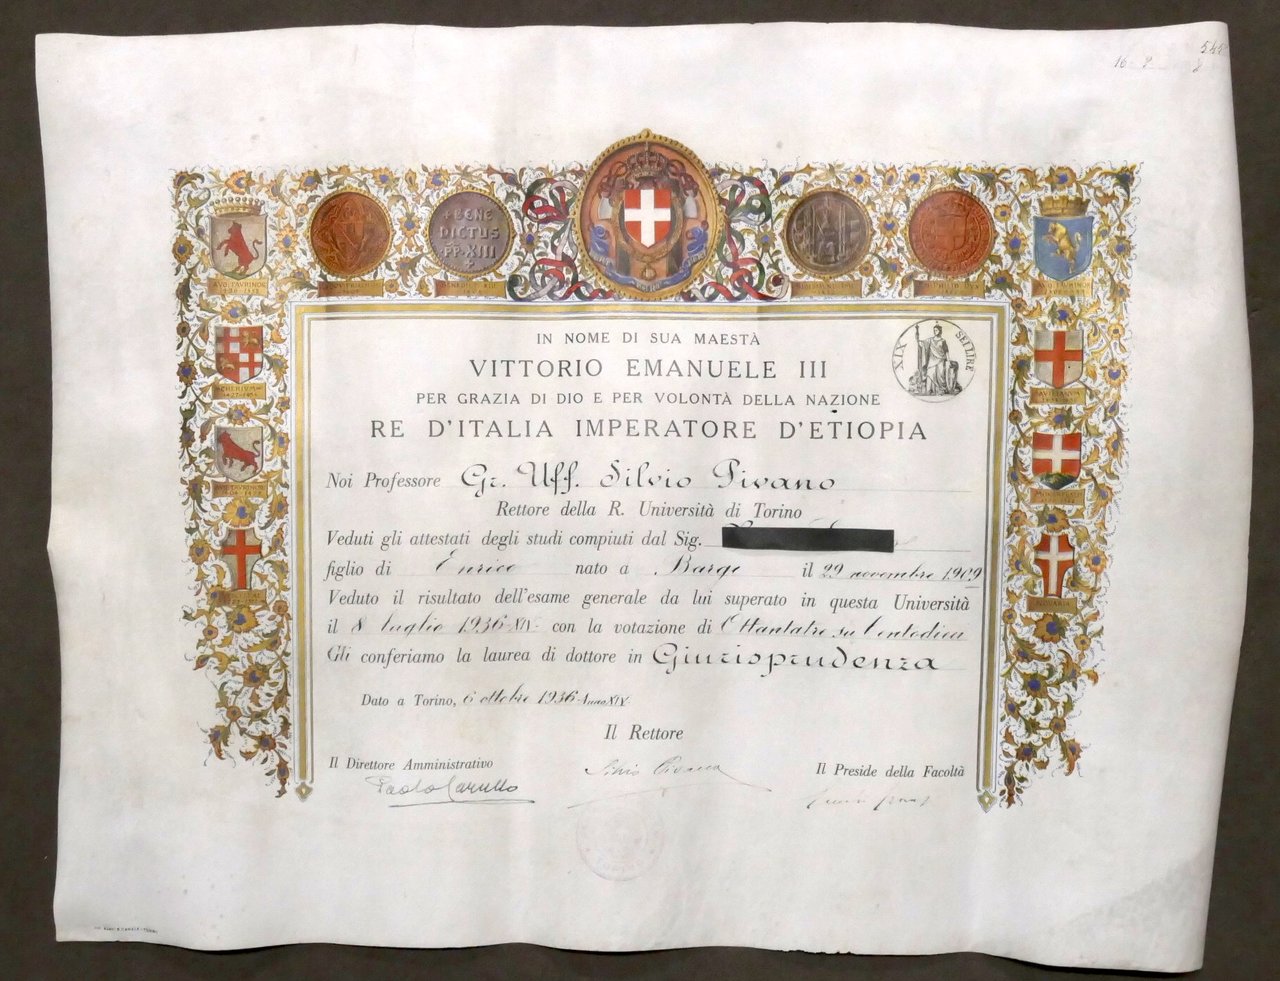 545
16 2
+ BENE
DICTUS
PP·XIII
AUG. TAURINOR
IN NOME DI SUA MAESTÀ
VITTORIO EMANUELE III
PER GRAZIA DI DIO E PER VOLONTÀ DELLA NAZIONE
RE D'ITALIA IMPERATORE D'ETIOPIA
XIX SEI LIRE
Noi Professore Gr. Uff. Silvio Pivano
Rettore della R. Università di Torino
Veduti gli attestati degli studi compiuti dal Sig.
figlio di Enrico nato a Barge il 29 novembre 1909
Veduto il risultato dell'esame generale da lui superato in questa Università
il 8 luglio 1936-XIV- con la votazione di Ottantatre su Centodieci
Gli conferiamo la laurea di dottore in Giurisprudenza
Dato a Torino, 6 ottobre 1936-Anno XIV-
Il Rettore
Il Direttore Amministrativo
Silvio Pivano
Il Preside della Facoltà
Paolo Carullo
NOVARIA